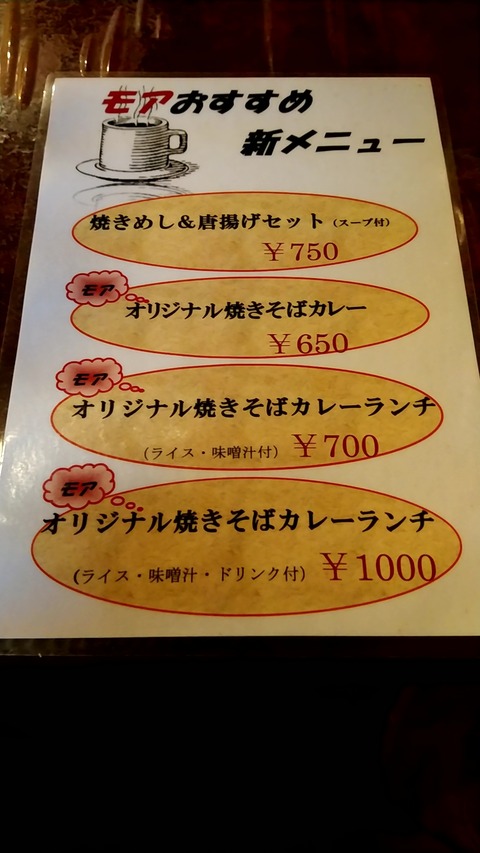 モアおすすめ
新メニュー
焼きめし＆唐揚げセット（スープ付）
￥750
モア
オリジナル焼きそばカレー
￥650
モア
オリジナル焼きそばカレーランチ
（ライス・味噌汁付）￥700
モア
オリジナル焼きそばカレーランチ
（ライス・味噌汁・ドリンク付）￥1000